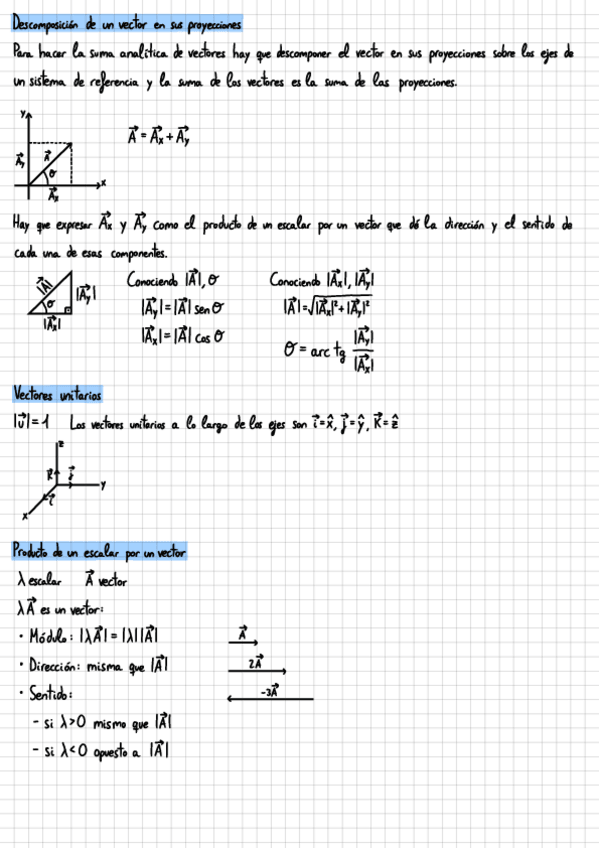 Descomposición de un vector en sus proyecciones
Para hacer la suma analítica de vectores hay que descomponer el vector en sus proyecciones sobre los ejes de
un sistema de referencia y la suma de los vectores es la suma de las proyecciones.
y
A⃗y A⃗ θ x
A⃗x
A⃗ = A⃗x + A⃗y
Hay que expresar A⃗x y A⃗y como el producto de un escalar por un vector que dé la dirección y el sentido de
cada una de esas componentes.
|A⃗| θ |A⃗y|
|A⃗x|
Conociendo |A⃗|, θ
|A⃗y| = |A⃗| sen θ
|A⃗x| = |A⃗| cos θ
Conociendo |A⃗x|, |A⃗y|
|A⃗| = √|A⃗x|² + |A⃗y|²
θ = arc tg |A⃗y| / |A⃗x|
Vectores unitarios
|u⃗| = 1 Los vectores unitarios a lo largo de los ejes son i⃗ = x̂, j⃗ = ŷ, k⃗ = ẑ
z
k⃗ j⃗ y
i⃗
x
Producto de un escalar por un vector
λ escalar A⃗ vector
λA⃗ es un vector:
· Módulo: |λA⃗| = |λ||A⃗| A⃗
· Dirección: misma que |A⃗| 2A⃗
· Sentido: -3A⃗
- si λ>0 mismo que |A⃗|
- si λ<0 opuesto a |A⃗|